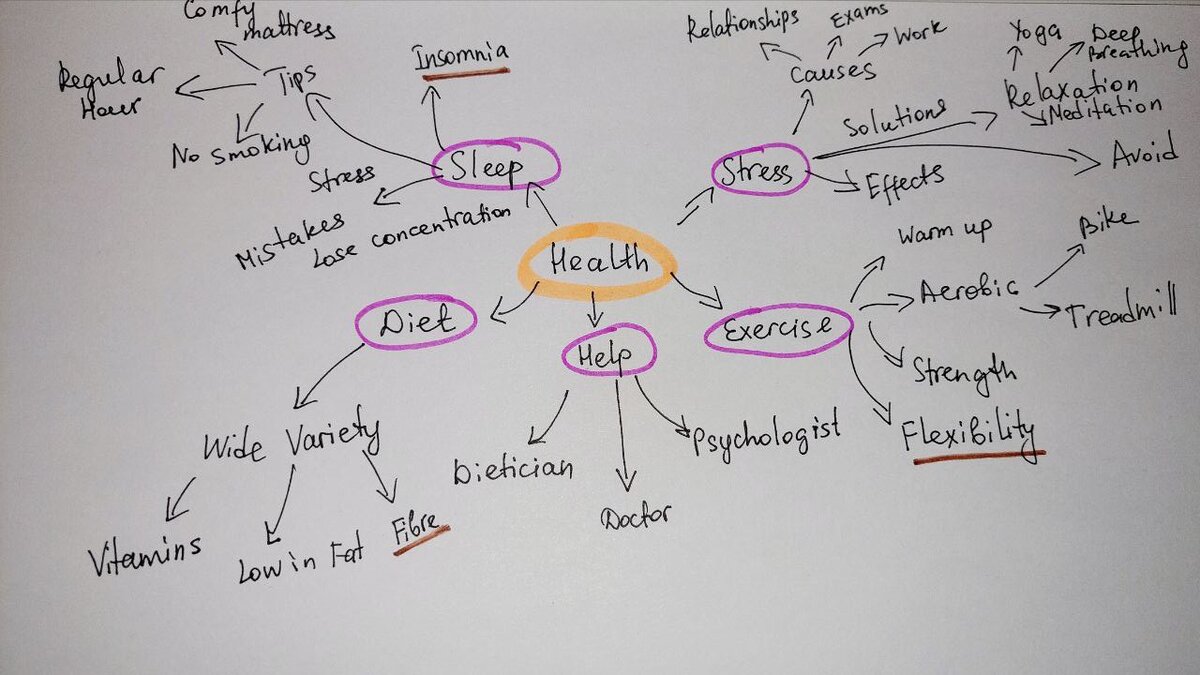 Comfy
mattress
Regular
Hour
Tips
No smoking
Insomnia
Sleep
Stress
Mistakes
Lose concentration
Relationships
Exams
Work
Causes
Yoga
Deep
Breathing
Relaxation
Meditation
Solutions
Stress
Avoid
Effects
Health
Warm up
Bike
Aerobic
Treadmill
Exercise
Strength
Flexibility
Diet
Wide Variety
Vitamins
Low in Fat
Fibre
Help
Dietician
Doctor
Psychologist